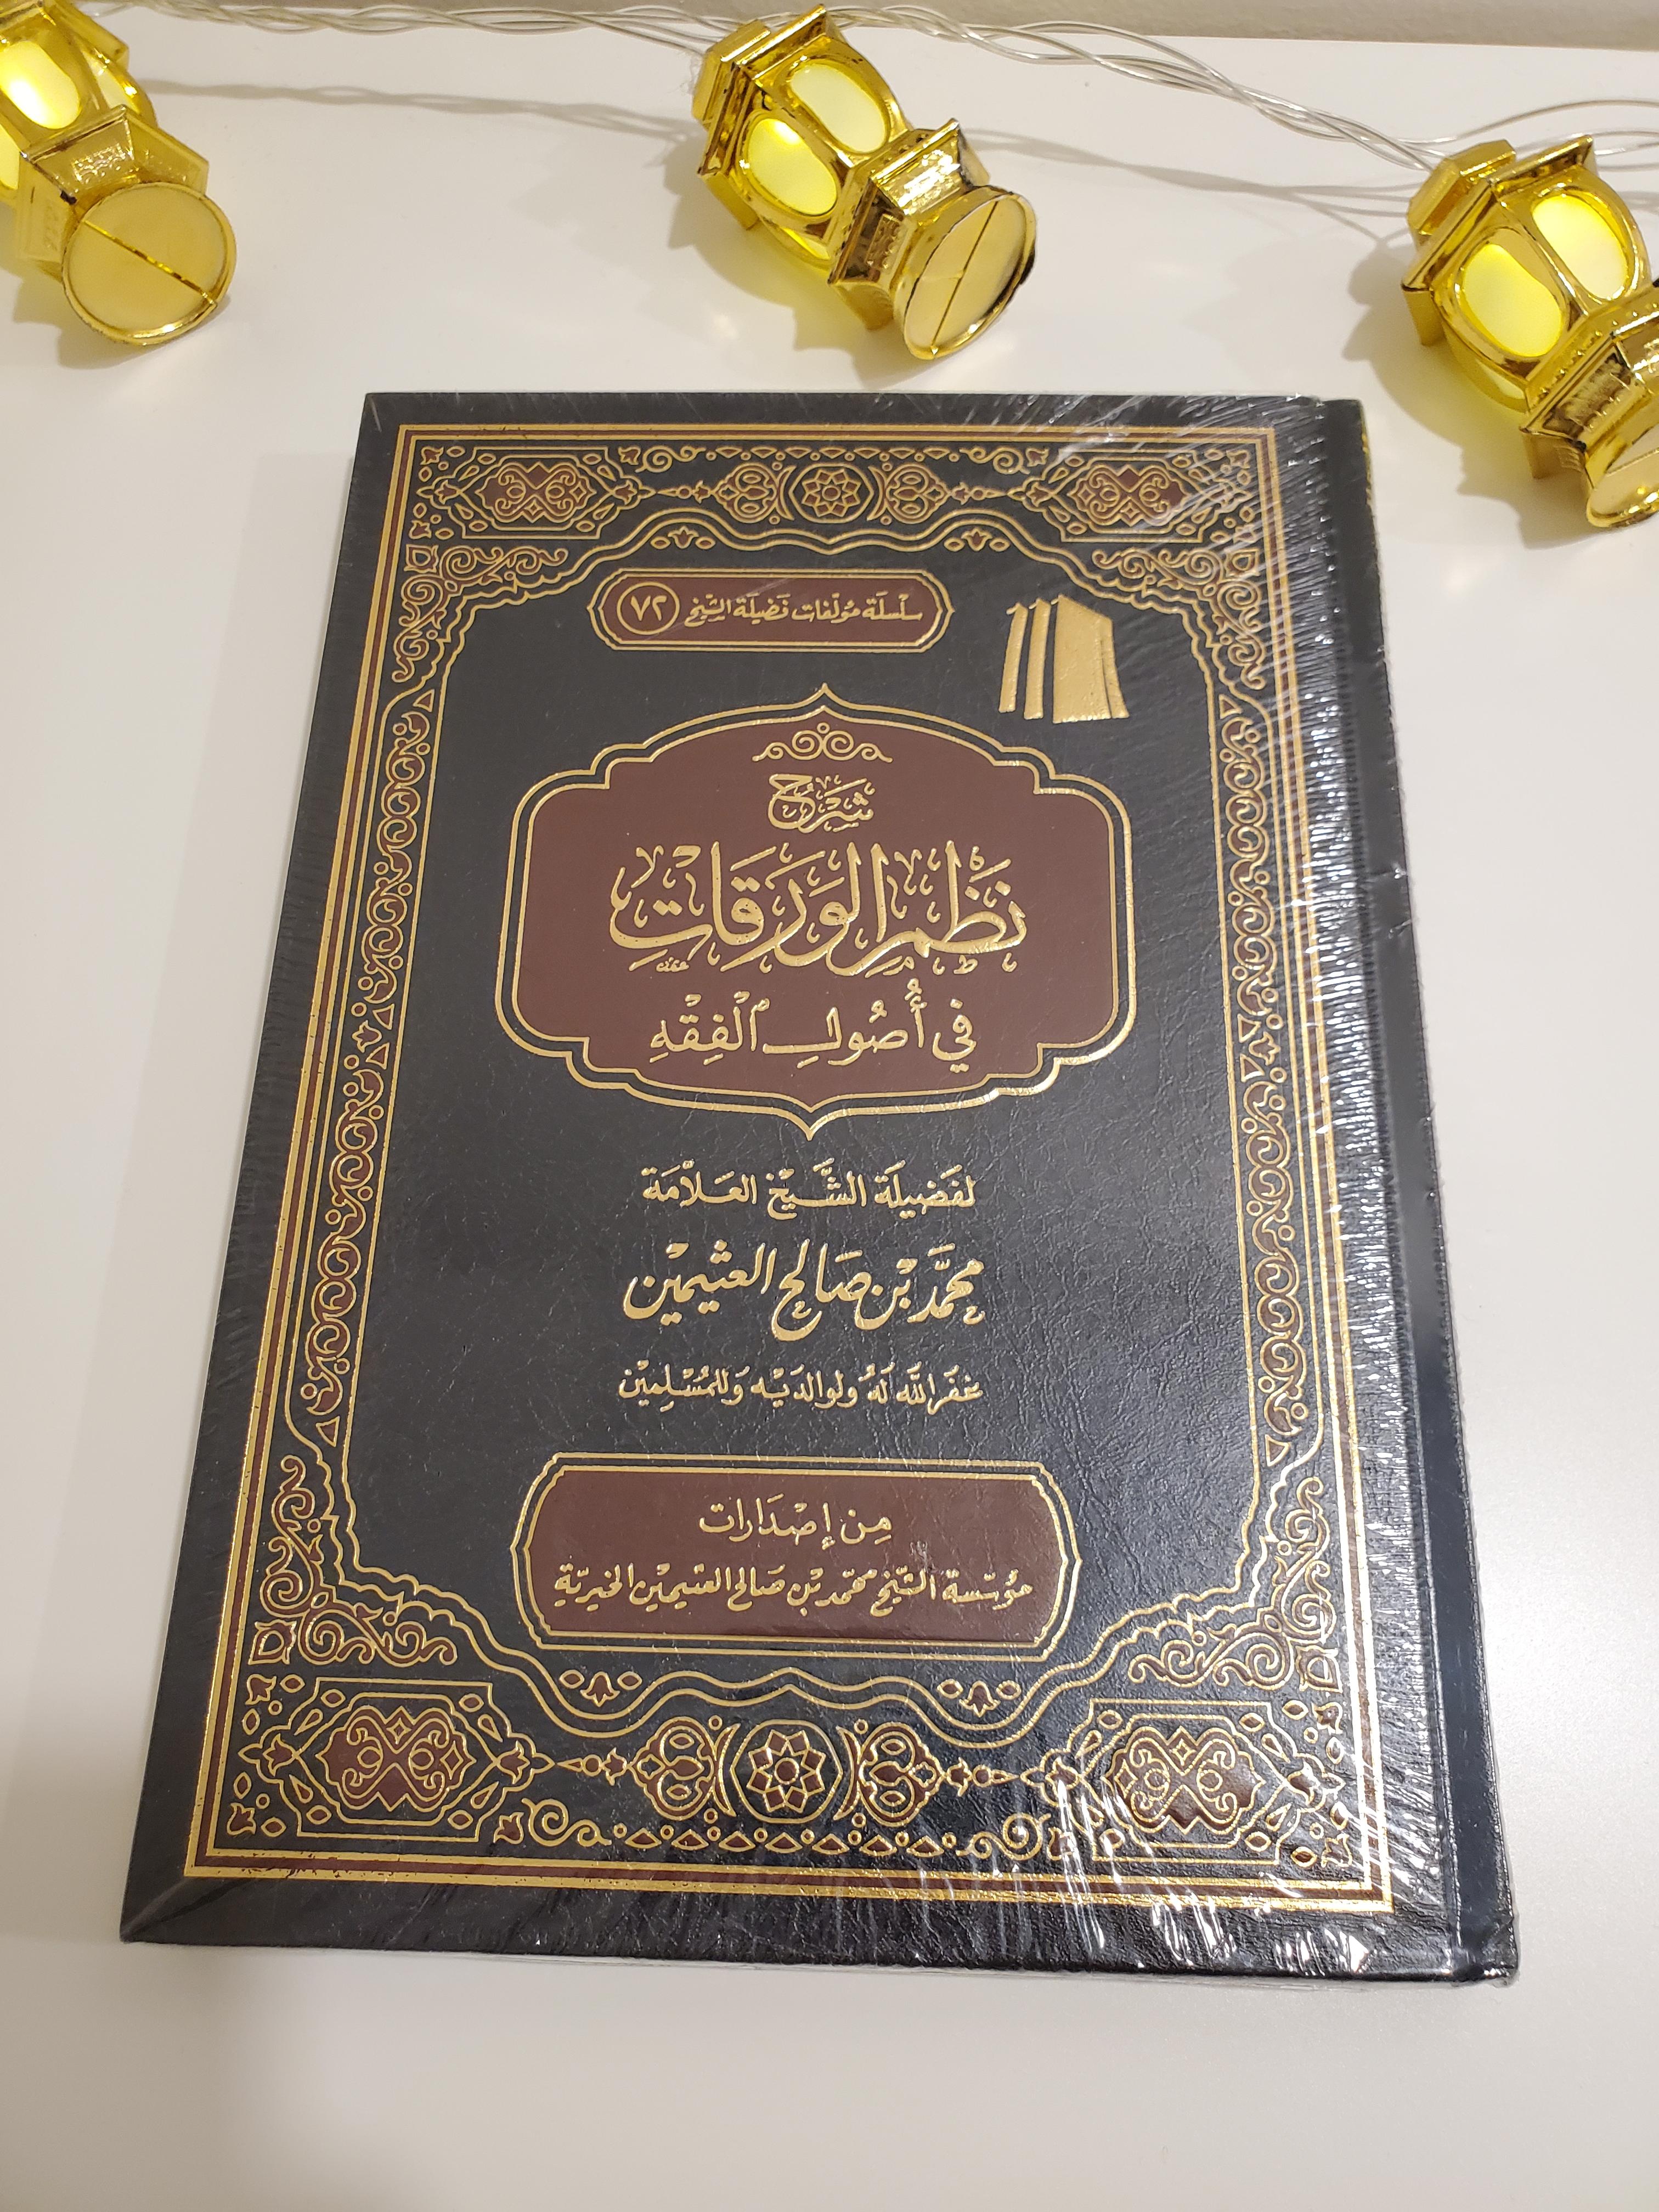 سلسلة مؤلفات فضيلة الشيخ ٧٢
شَرْحُ
نَظْمِ الْوَرَقَاتِ
فِي أُصُولِ الْفِقْهِ
لفَضِيلَة الشَّيْخ العَلَّامَة
محمَّد بْن صَالح العثيمين
غفَر اللَّه لَهُ ولوالدَيْه وَللمُسْلِمِيْن
مِن إصْدَارات
مؤسّسة الشّيخ محمّد بْن صَالح العثيمين الخيريّة